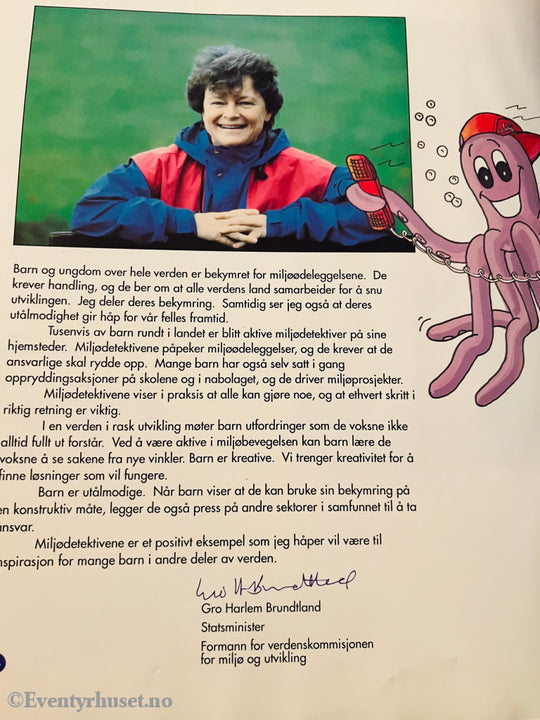 Barn og ungdom over hele verden er bekymret for miljøødeleggelsene. De
krever handling, og de ber om at alle verdens land samarbeider for å snu
utviklingen. Jeg deler deres bekymring. Samtidig ser jeg også at deres
utålmodighet gir håp for vår felles framtid.
Tusenvis av barn rundt i landet er blitt aktive miljødetektiver på sine
hjemsteder. Miljødetektivene påpeker miljøødeleggelser, og de krever at de
ansvarlige skal rydde opp. Mange barn har også selv satt i gang
oppryddingsaksjoner på skolene og i nabolaget, og de driver miljøprosjekter.
Miljødetektivene viser i praksis at alle kan gjøre noe, og at ethvert skritt i
riktig retning er viktig.
I en verden i rask utvikling møter barn utfordringer som de voksne ikke
alltid fullt ut forstår. Ved å være aktive i miljøbevegelsen kan barn lære de
voksne å se sakene fra nye vinkler. Barn er kreative. Vi trenger kreativitet for å
finne løsninger som vil fungere.
Barn er utålmodige. Når barn viser at de kan bruke sin bekymring på
en konstruktiv måte, legger de også press på andre sektorer i samfunnet til å ta
ansvar.
Miljødetektivene er et positivt eksempel som jeg håper vil være til
nspirasjon for mange barn i andre deler av verden.
Gro H Brundtland
Gro Harlem Brundtland
Statsminister
Formann for verdenskommisjonen
for miljø og utvikling
©Eventyrhuset.no